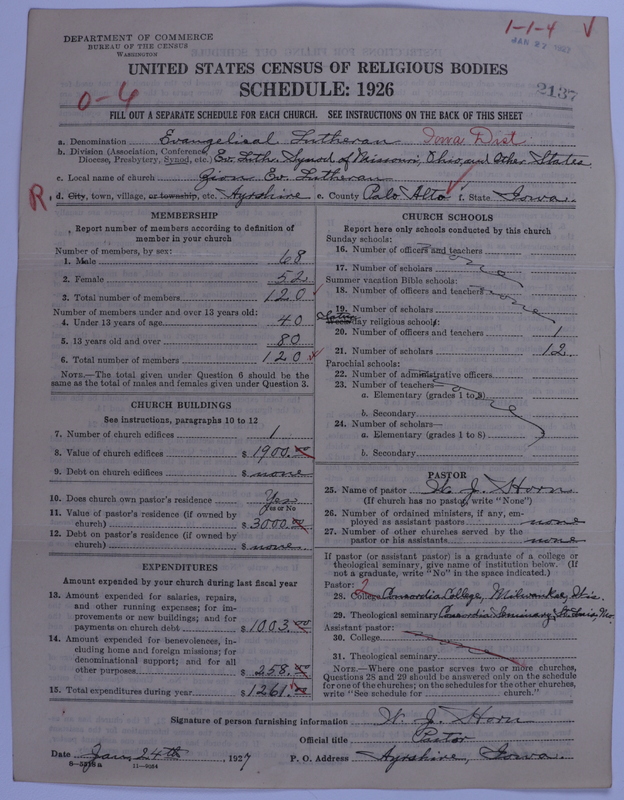 DEPARTMENT OF COMMERCE
BUREAU OF THE CENSUS
WASHINGTON
1-1-4 ✓
JAN 27 1927
UNITED STATES CENSUS OF RELIGIOUS BODIES
SCHEDULE: 1926
2137
0-6
FILL OUT A SEPARATE SCHEDULE FOR EACH CHURCH. SEE INSTRUCTIONS ON THE BACK OF THIS SHEET
a. Denomination Evangelical Lutheran Iowa Dist
b. Division (Association, Conference,
Diocese, Presbytery, Synod, etc.) Ev. Luth. Synod of Missouri, Ohio, and Other States
c. Local name of church Zion Ev. Lutheran
R d. City, town, village, or township, etc. Ayrshire e. County Palo Alto f. State Iowa
MEMBERSHIP
Report number of members according to definition of
member in your church
Number of members, by sex:
1. Male 68
2. Female 52
3. Total number of members 120
Number of members under and over 13 years old:
4. Under 13 years of age 40
5. 13 years old and over 80
6. Total number of members 120
NOTE.—The total given under Question 6 should be
same as the total of males and females given under Question 3.
CHURCH BUILDINGS
See instructions, paragraphs 10 to 12
7. Number of church edifices 1
8. Value of church edifices $ 1900.00
9. Debt on church edifices $ none
10. Does church own pastor's residence Yes
Yes or No
11. Value of pastor's residence (if owned by
church) $ 3000.00
12. Debt on pastor's residence (if owned by
church) $ none
EXPENDITURES
Amount expended by your church during last fiscal year
13. Amount expended for salaries, repairs,
and other running expenses; for im-
provements or new buildings; and for
payments on church debt $ 1003.00
14. Amount expended for benevolences, in-
cluding home and foreign missions; for
denominational support; and for all
other purposes $ 258.00
15. Total expenditures during year $ 1261.00
CHURCH SCHOOLS
Report here only schools conducted by this church
Sunday schools:
16. Number of officers and teachers
none
17. Number of scholars
Summer vacation Bible schools:
18. Number of officers and teachers
none
19. Number of scholars
day religious schools:
20. Number of officers and teachers 1
21. Number of scholars 12
Parochial schools:
22. Number of administrative officers
23. Number of teachers—
a. Elementary (grades 1 to 8)
none
b. Secondary
24. Number of scholars—
a. Elementary (grades 1 to 8)
b. Secondary
PASTOR
25. Name of pastor W. J. Horn
(If church has no pastor, write "None")
26. Number of ordained ministers, if any, em-
ployed as assistant pastors none
27. Number of other churches served by the
pastor or his assistants none
If pastor (or assistant pastor) is a graduate of a college or
theological seminary, give name of institution below. (If
not a graduate, write "No" in the space indicated.)
Pastor: 2
28. College Concordia College, Milwaukee, Wis.
29. Theological seminary Concordia Seminary, St. Louis, Mo.
Assistant pastor:
30. College
none
31. Theological seminary
NOTE.—Where one pastor serves two or more churches,
Questions 28 and 29 should be answered only on the schedule
for one of the churches; on the schedules for the other churches,
write "See schedule for church."
Signature of person furnishing information W. J. Horn
Official title Pastor
Date Jan. 24th, 1927 P. O. Address Ayrshire, Iowa.
8-5318a 11-9054